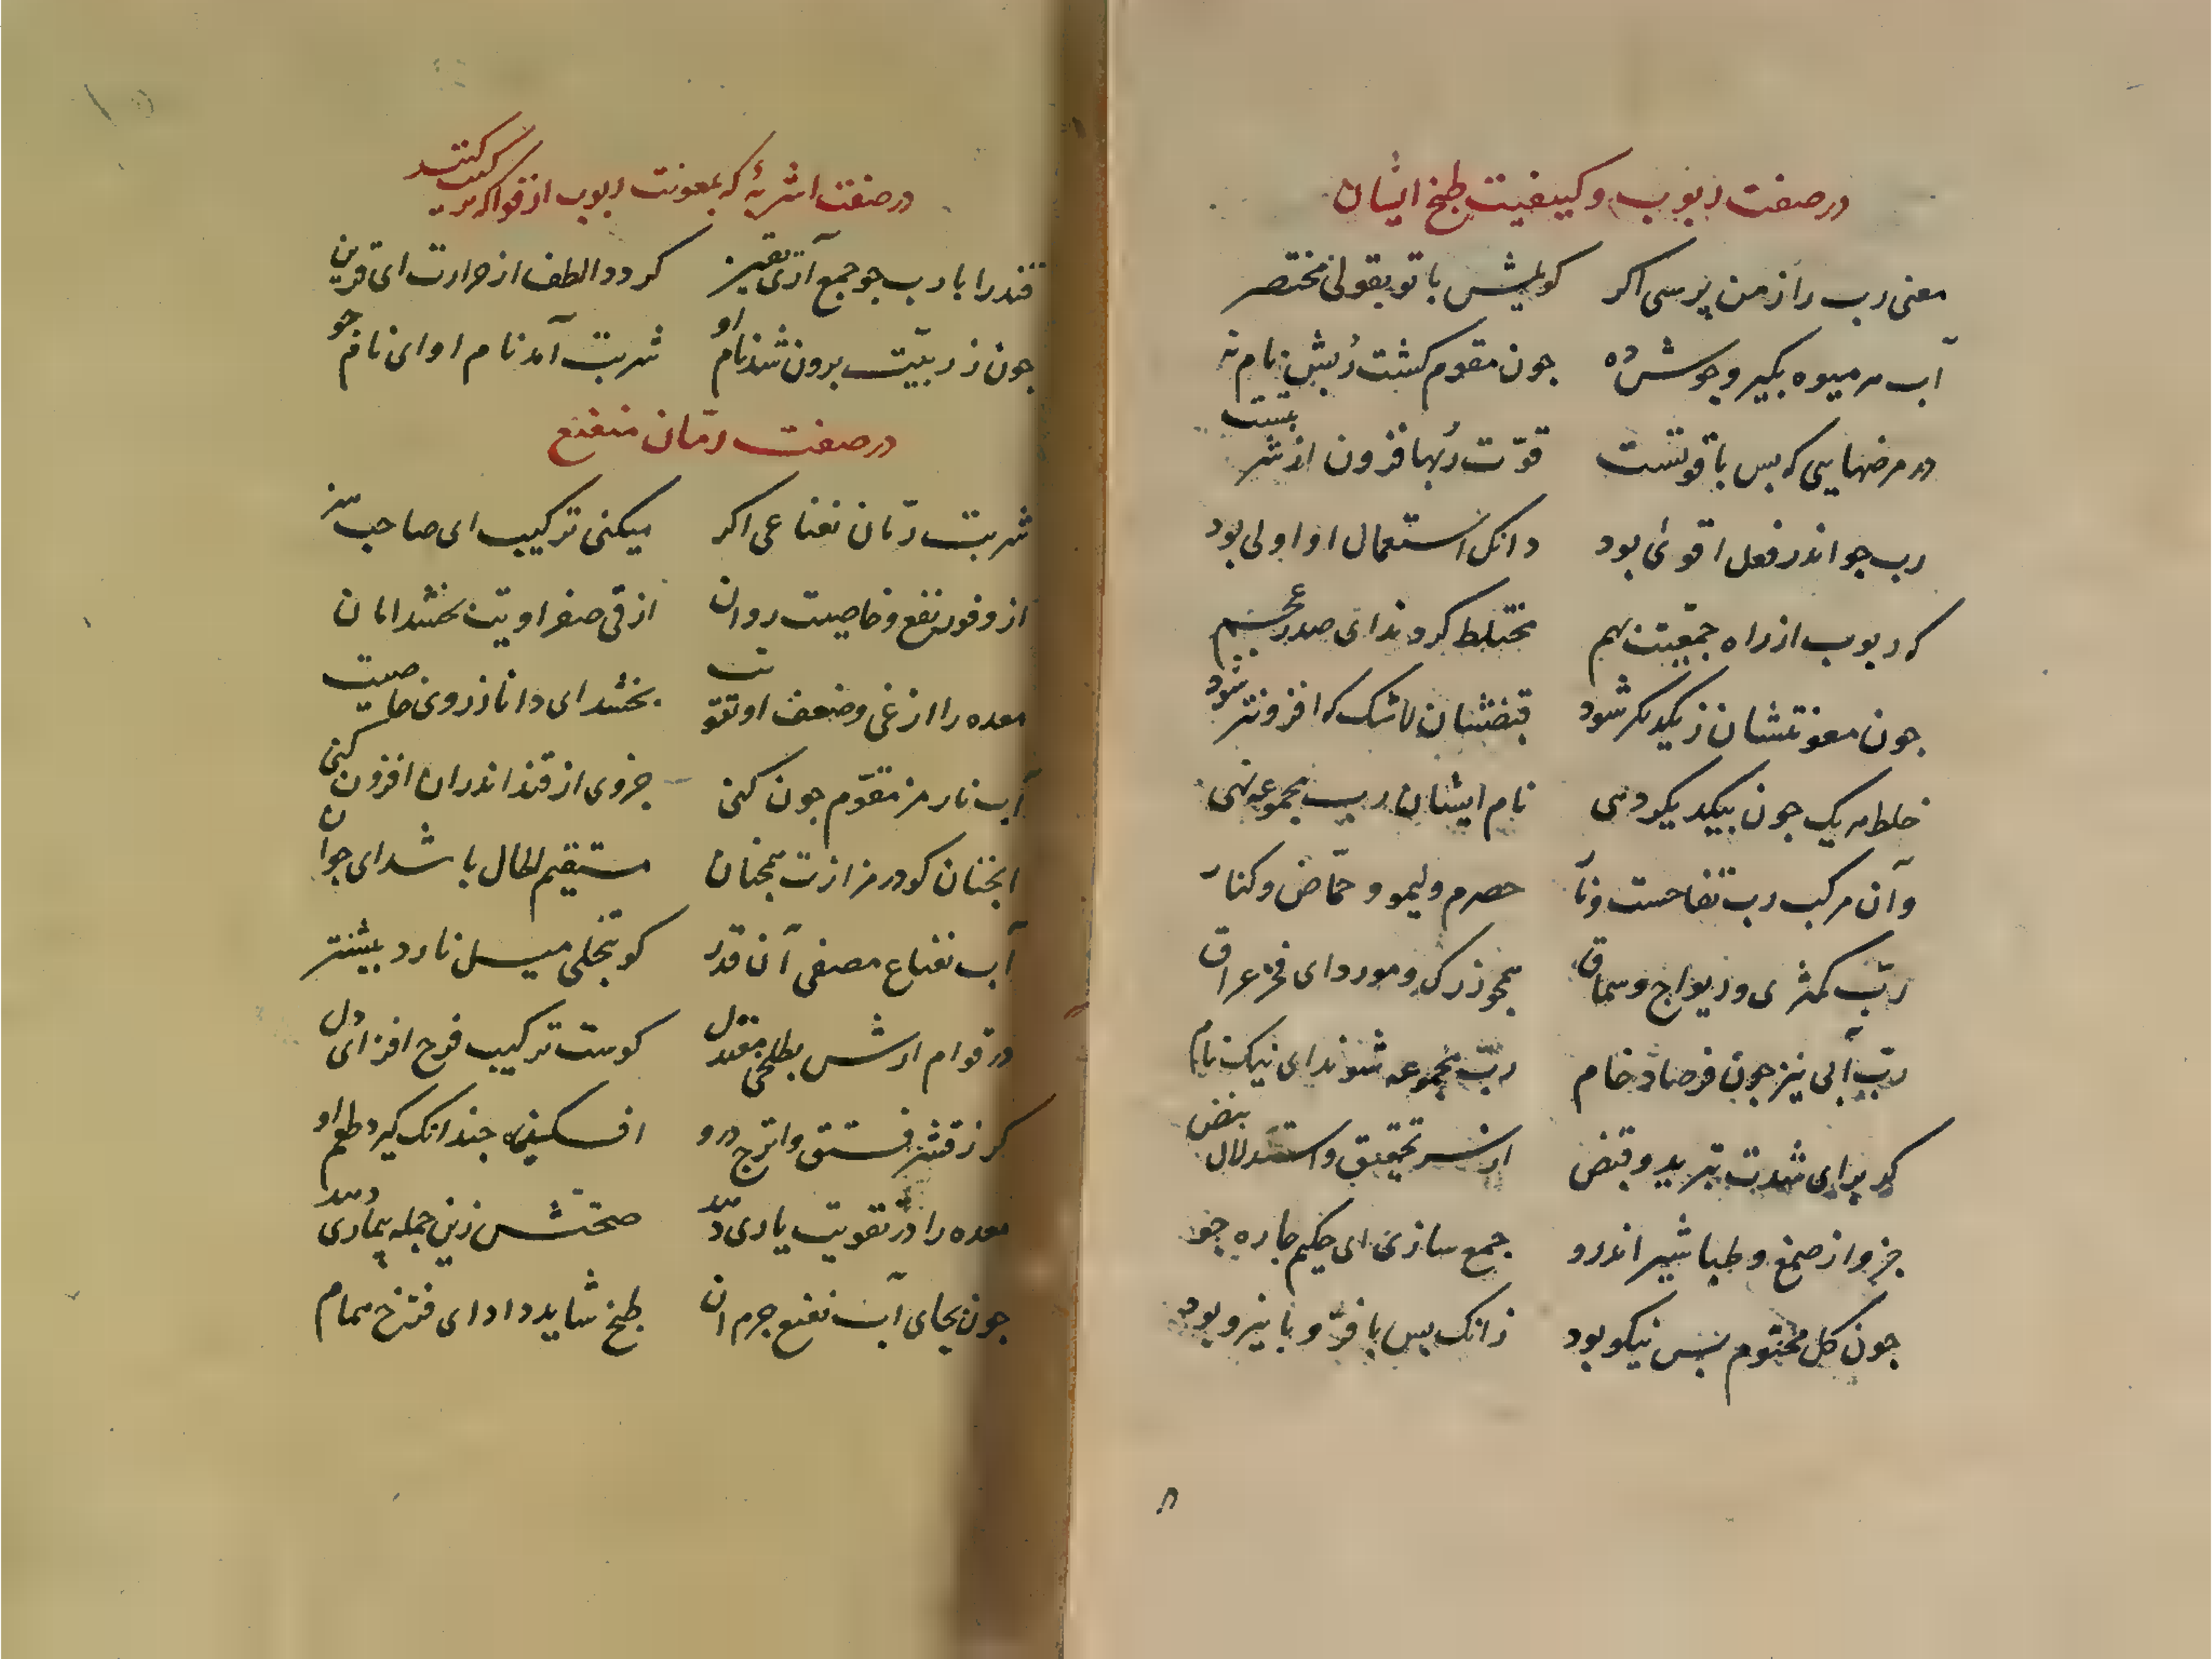 در صفت ربوب و کیفیت طبخ ایشان
معنی رب را ز من پرسی اکر کویمش با تو بقولی مختصر
آب هر میوه بکیر و جوش ده جون مقوم کشت ربش نام نه
در مرضهایی که بس با قوتست قوّت ربها فزون از شربتست
رب جو اندر فعل اقوی بود دانک استعمال او اولی بود
کر ربوب از راه جمعیت بهم مختلط کردند ای صدر عجم
جون معونتشان ز یکدیکر شود قبضشان لاشک که افزونتر شود
خلط هر یک جون بیکدیکر دهی نام ایشان رب مجموعه نهی
وآن مرکب رب تفاحست ونار حصرم ولیمو و حمّاض وکنار
ربّ کمثری و ریواج وسماق همجو زرک ومورد ای فخر عراق
ربّ آبی نیز جون فرصاد خام ربّ مجموعه شوند ای نیک نام
کر برای شدت تبرید وقبض از سر تحقیق واستدلال نبض
جزو از صمغ وطباشیر اندرو جمع سازی ای حکیم جاره جو
جون کل مختوم بس نیکو بود زانک بس با فرّ و با نیرو بود
در صفت اشربهٔ که بمعونت ربوب از فواکه ترکیب کنند
قند را با رب جو جمع آری یقین کردد الطف از حرارت ای قرین
جون ز ربیّت برون شد نام او شربت آمد نام او ای نام جو
در صفت رمّان منعنع
شربت رمّان نعناعی اکر میکنی ترکیب ای صاحب هنر
از وفور نفع وخاصیت روان از قی صفراویت بخشد امان
معده را از غی وضعف او تقویت بخشد ای دانا ز روی خاصیت
آب نار مز مقوّم جون کنی جزوی از قند اندران افزون کنی
انجنان کو در مزازت همجنان مستقیم الحال باشد ای جوان
آب نعناع مصفی آن قدر کو بتحلی میل نارد بیشتر
در قوام ارش بطلخی معتدل کوست ترکیب فرح افزای دل
کر ز قشر فستق واترج درو افکنی جندانک کیرد طعم او
معده را در تقویت یاری دهد صحتش زین جمله بیماری دهد
جون بجای آب نعنع جرم آن طبخ شاید داد ای فرخ همام